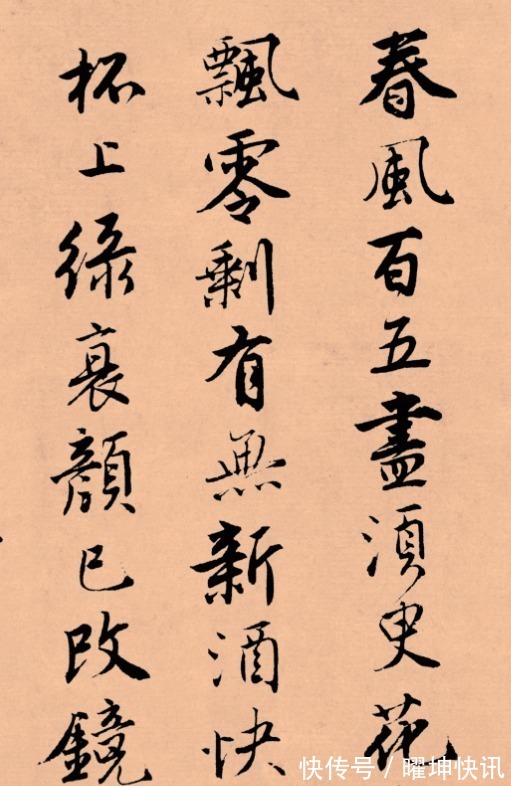 春風百五盡須臾花
飄零剩有無新酒快
杯上綠衰顏已改鏡
快传号 / 曜坤快讯